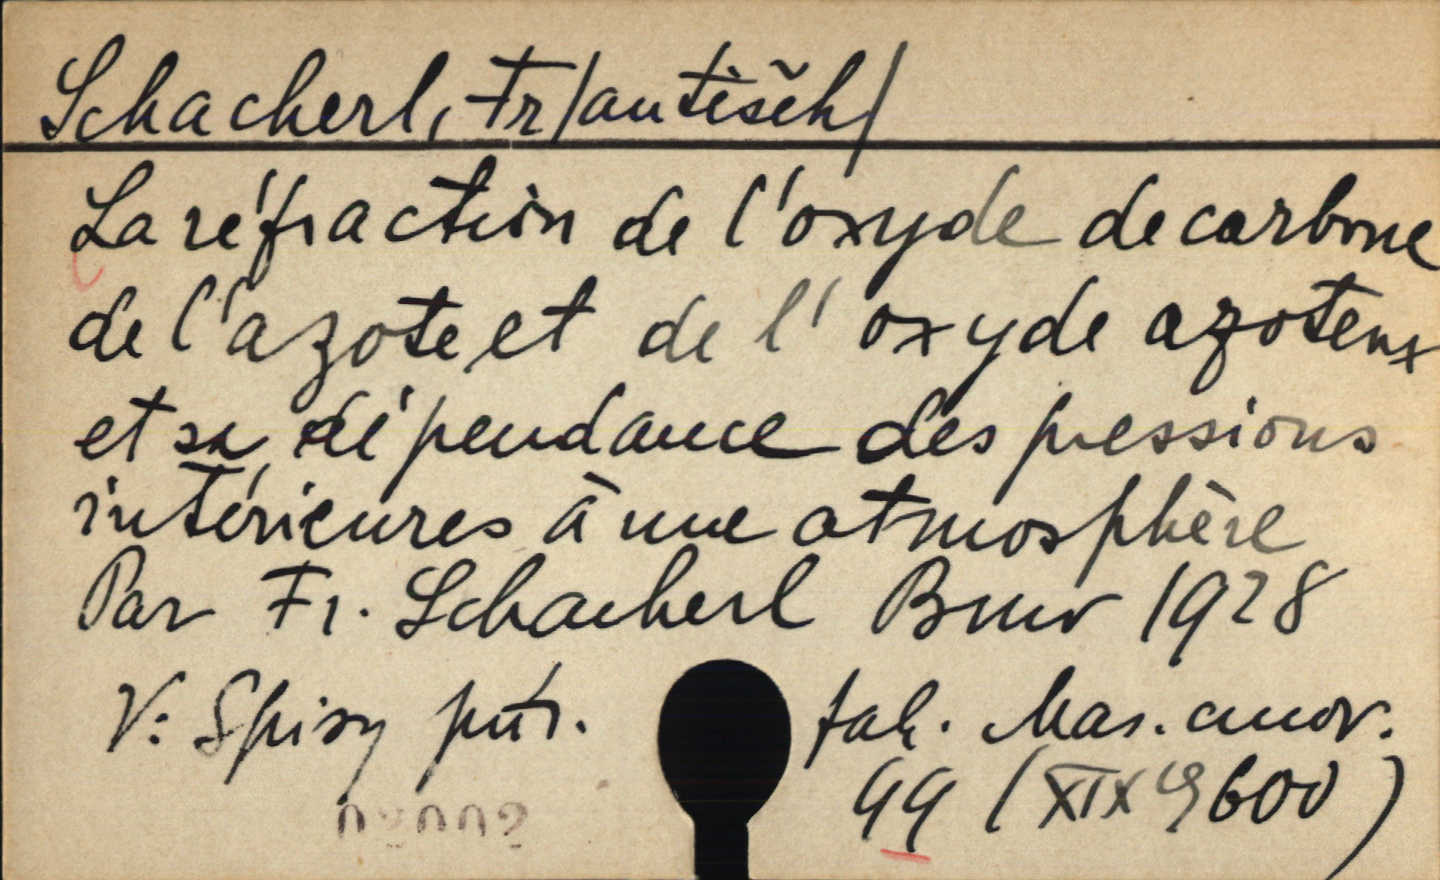 Schacherl, Fr/antišek/
La réfraction de l'oxyde de carbone
de l'azote, et de l' oxyde azoteux
et sa dépendance des pressions
intérieures à une atmosphère
Par Fr. Schacherl Brno 1928
V: Spisy přír. fak. Mas. univ.
99 (XIX 600)